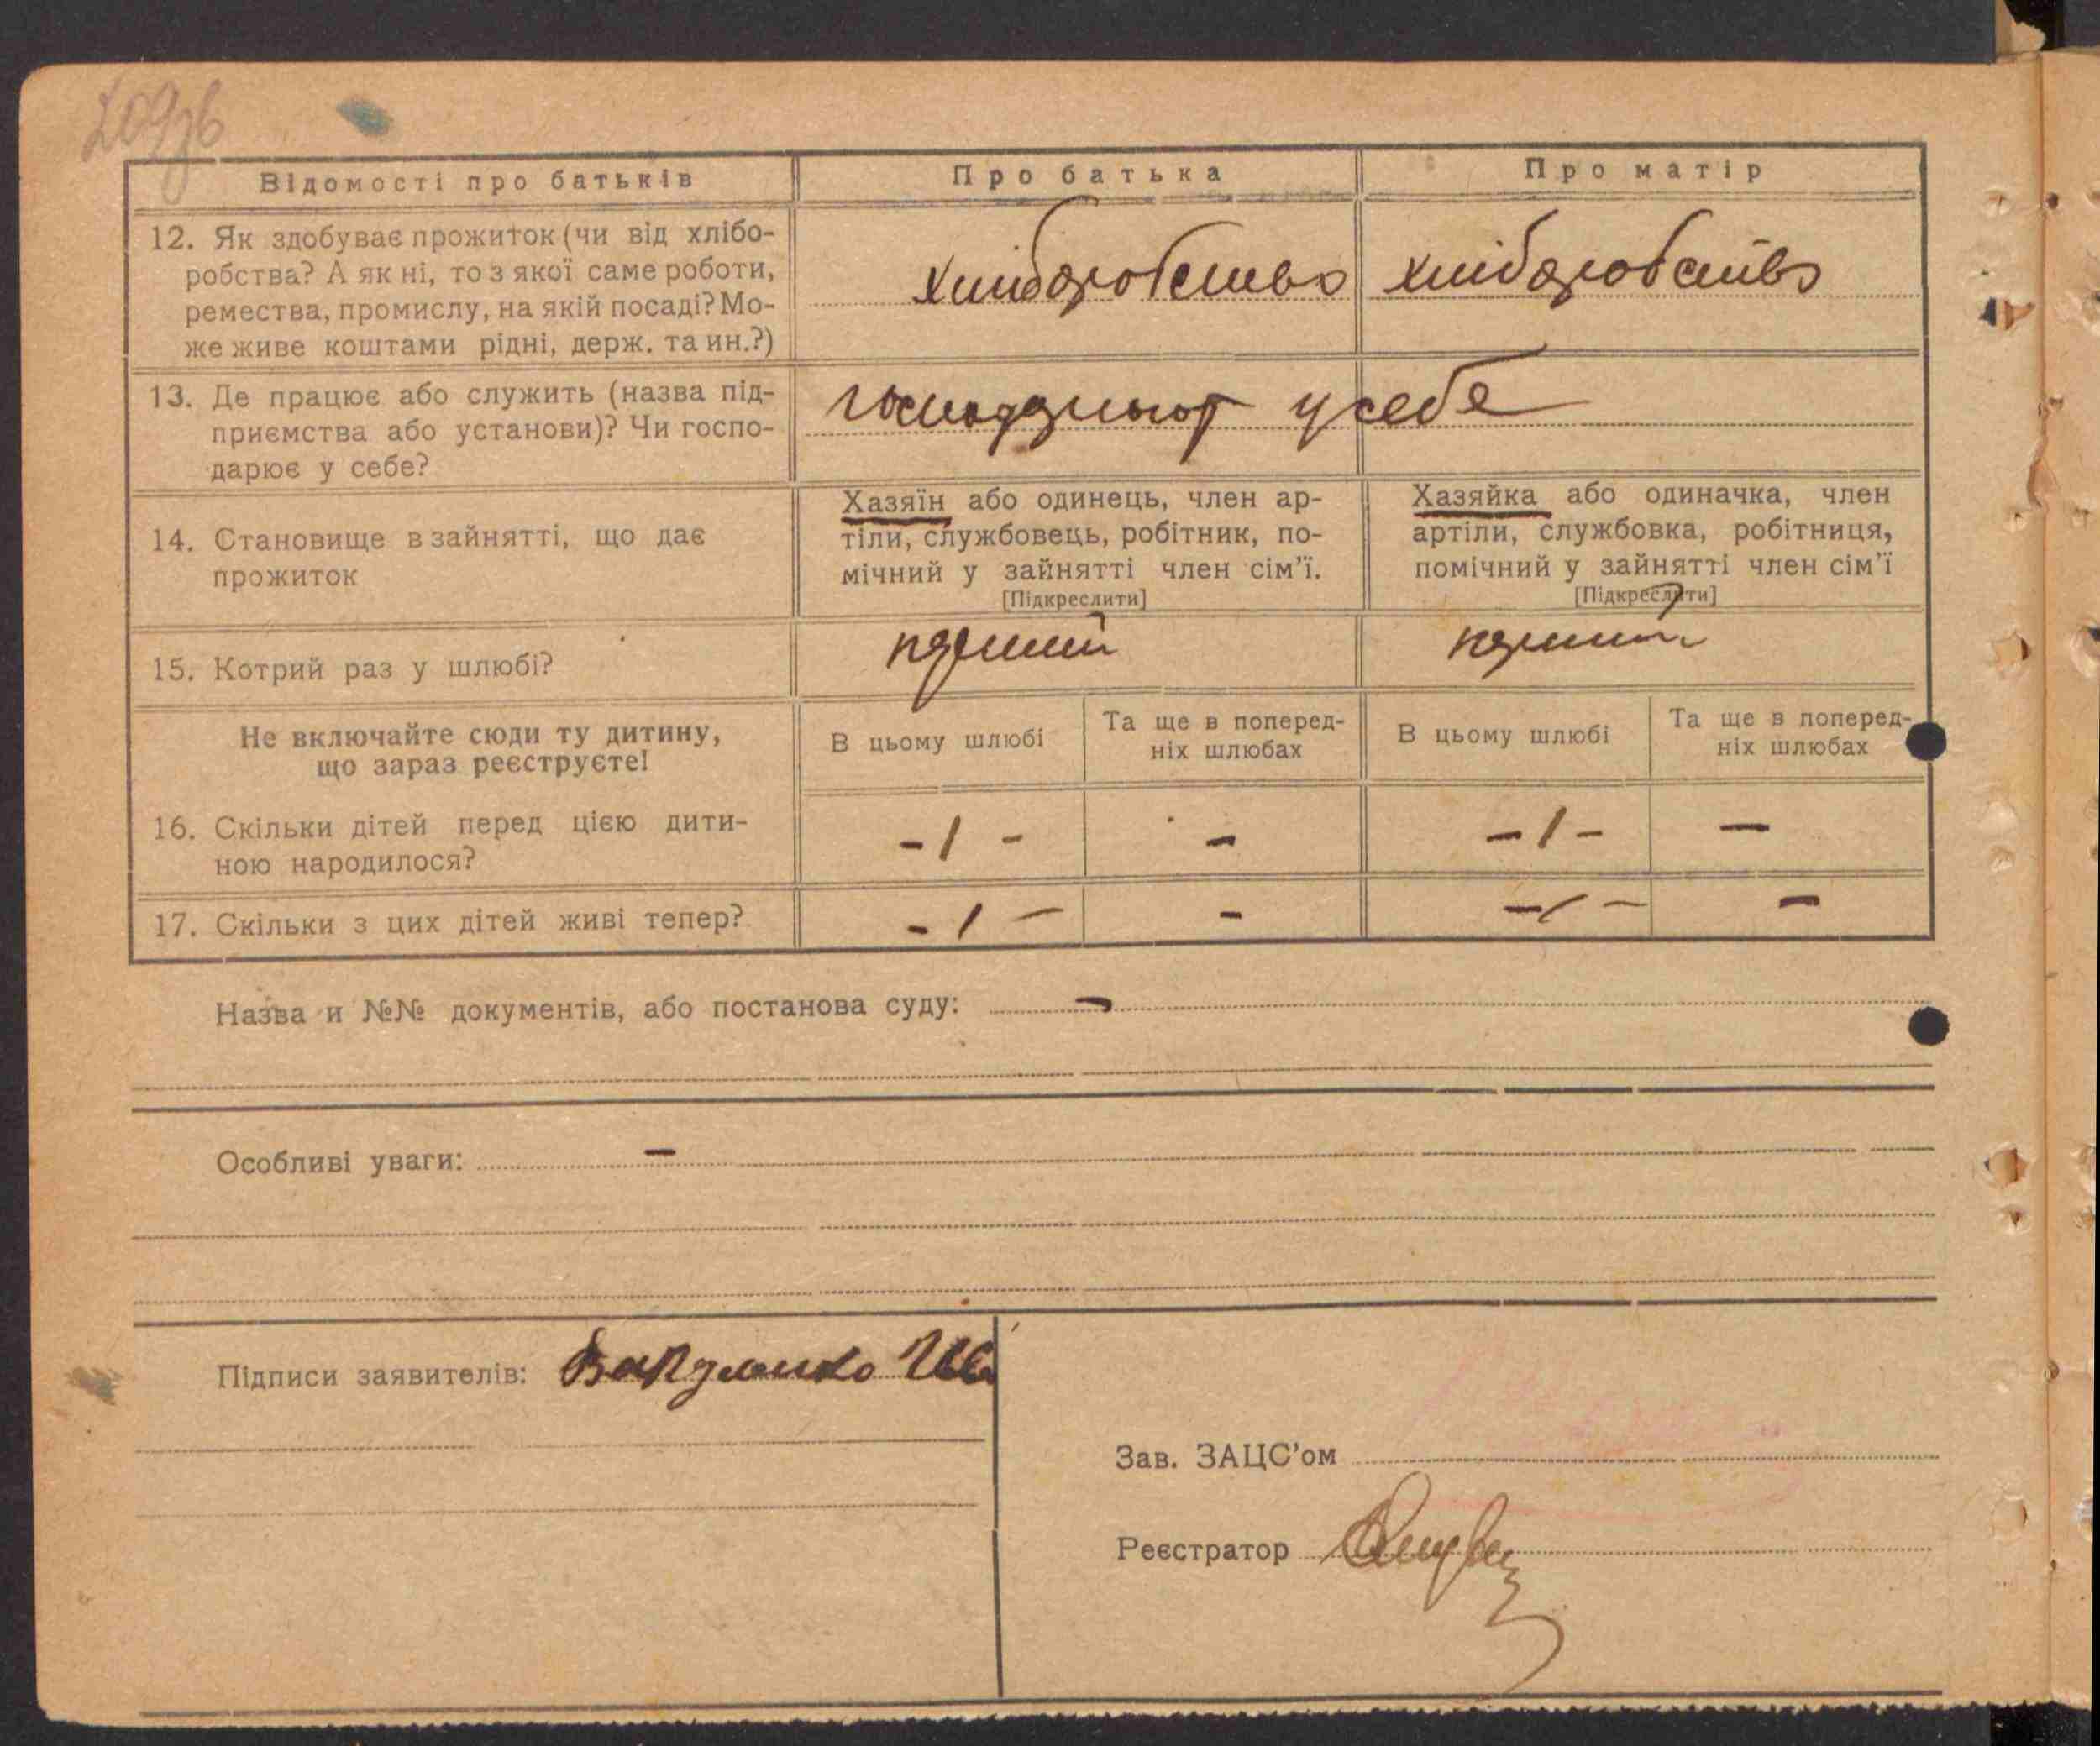 Відомості про батьків Про батька Про матір
12. Як здобуває прожиток (чи від хлібо-
робства? А як ні, то з якої саме роботи,
ремества, промислу, на якій посаді? Мо-
же живе коштами рідні, держ. та ин.?)
хліборобство хліборобство
13. Де працює або служить (назва під-
приємства або установи)? Чи госпо-
дарює у себе?
у себе
14. Становище в зайнятті, що дає
прожиток
Хазяїн або одинець, член ар-
тіли, службовець, робітник, по-
мічний у зайнятті член сім'ї.
[Підкреслити]
Хазяйка або одиначка, член
артіли, службовка, робітниця,
помічний у зайнятті член сім'ї
[Підкреслити]
15. Котрий раз у шлюбі?
перший перший
Не включайте сюди ту дитину,
що зараз реєструєте!
В цьому шлюбі
Та ще в поперед-
ніх шлюбах
В цьому шлюбі
Та ще в поперед-
ніх шлюбах
16. Скільки дітей перед цією дити-
ною народилося?
-1- - -1- -
17. Скільки з цих дітей живі тепер? -1- - -1- -
Назва и №№ документів, або постанова суду: -
Особливі уваги: -
Підписи заявителів: Вакуленко
Зав. ЗАЦС'ом
Реєстратор